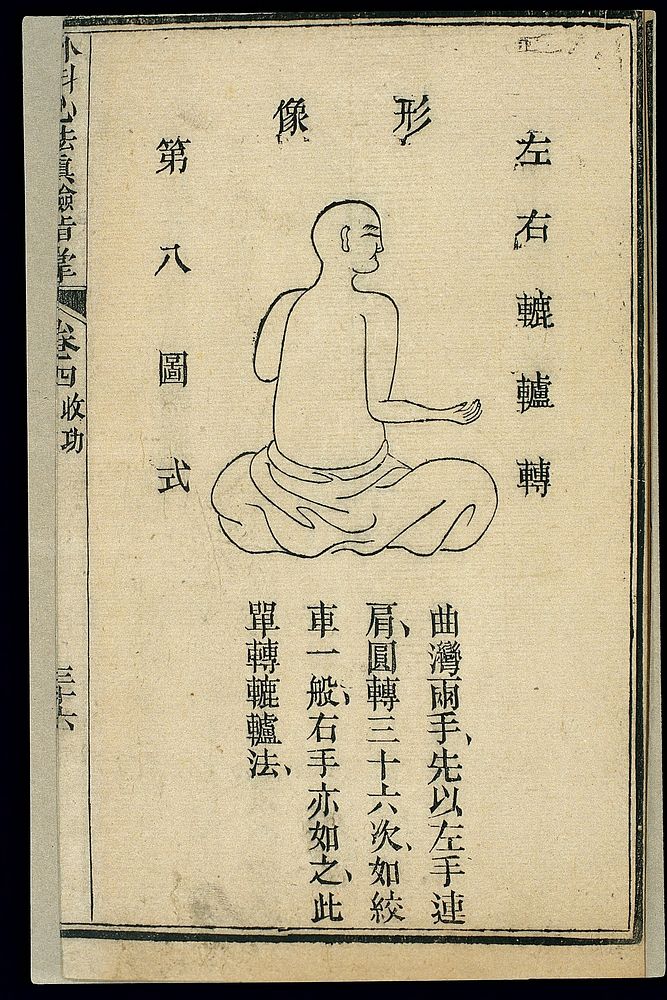 左右轆轤轉
形像
第八圖式
曲灣兩手、先以左手連
肩、圓轉三十六次、如絞
車一般、右手亦如之、此
單轉轆轤法、
外科心法真驗指掌
卷四 收功
三十六